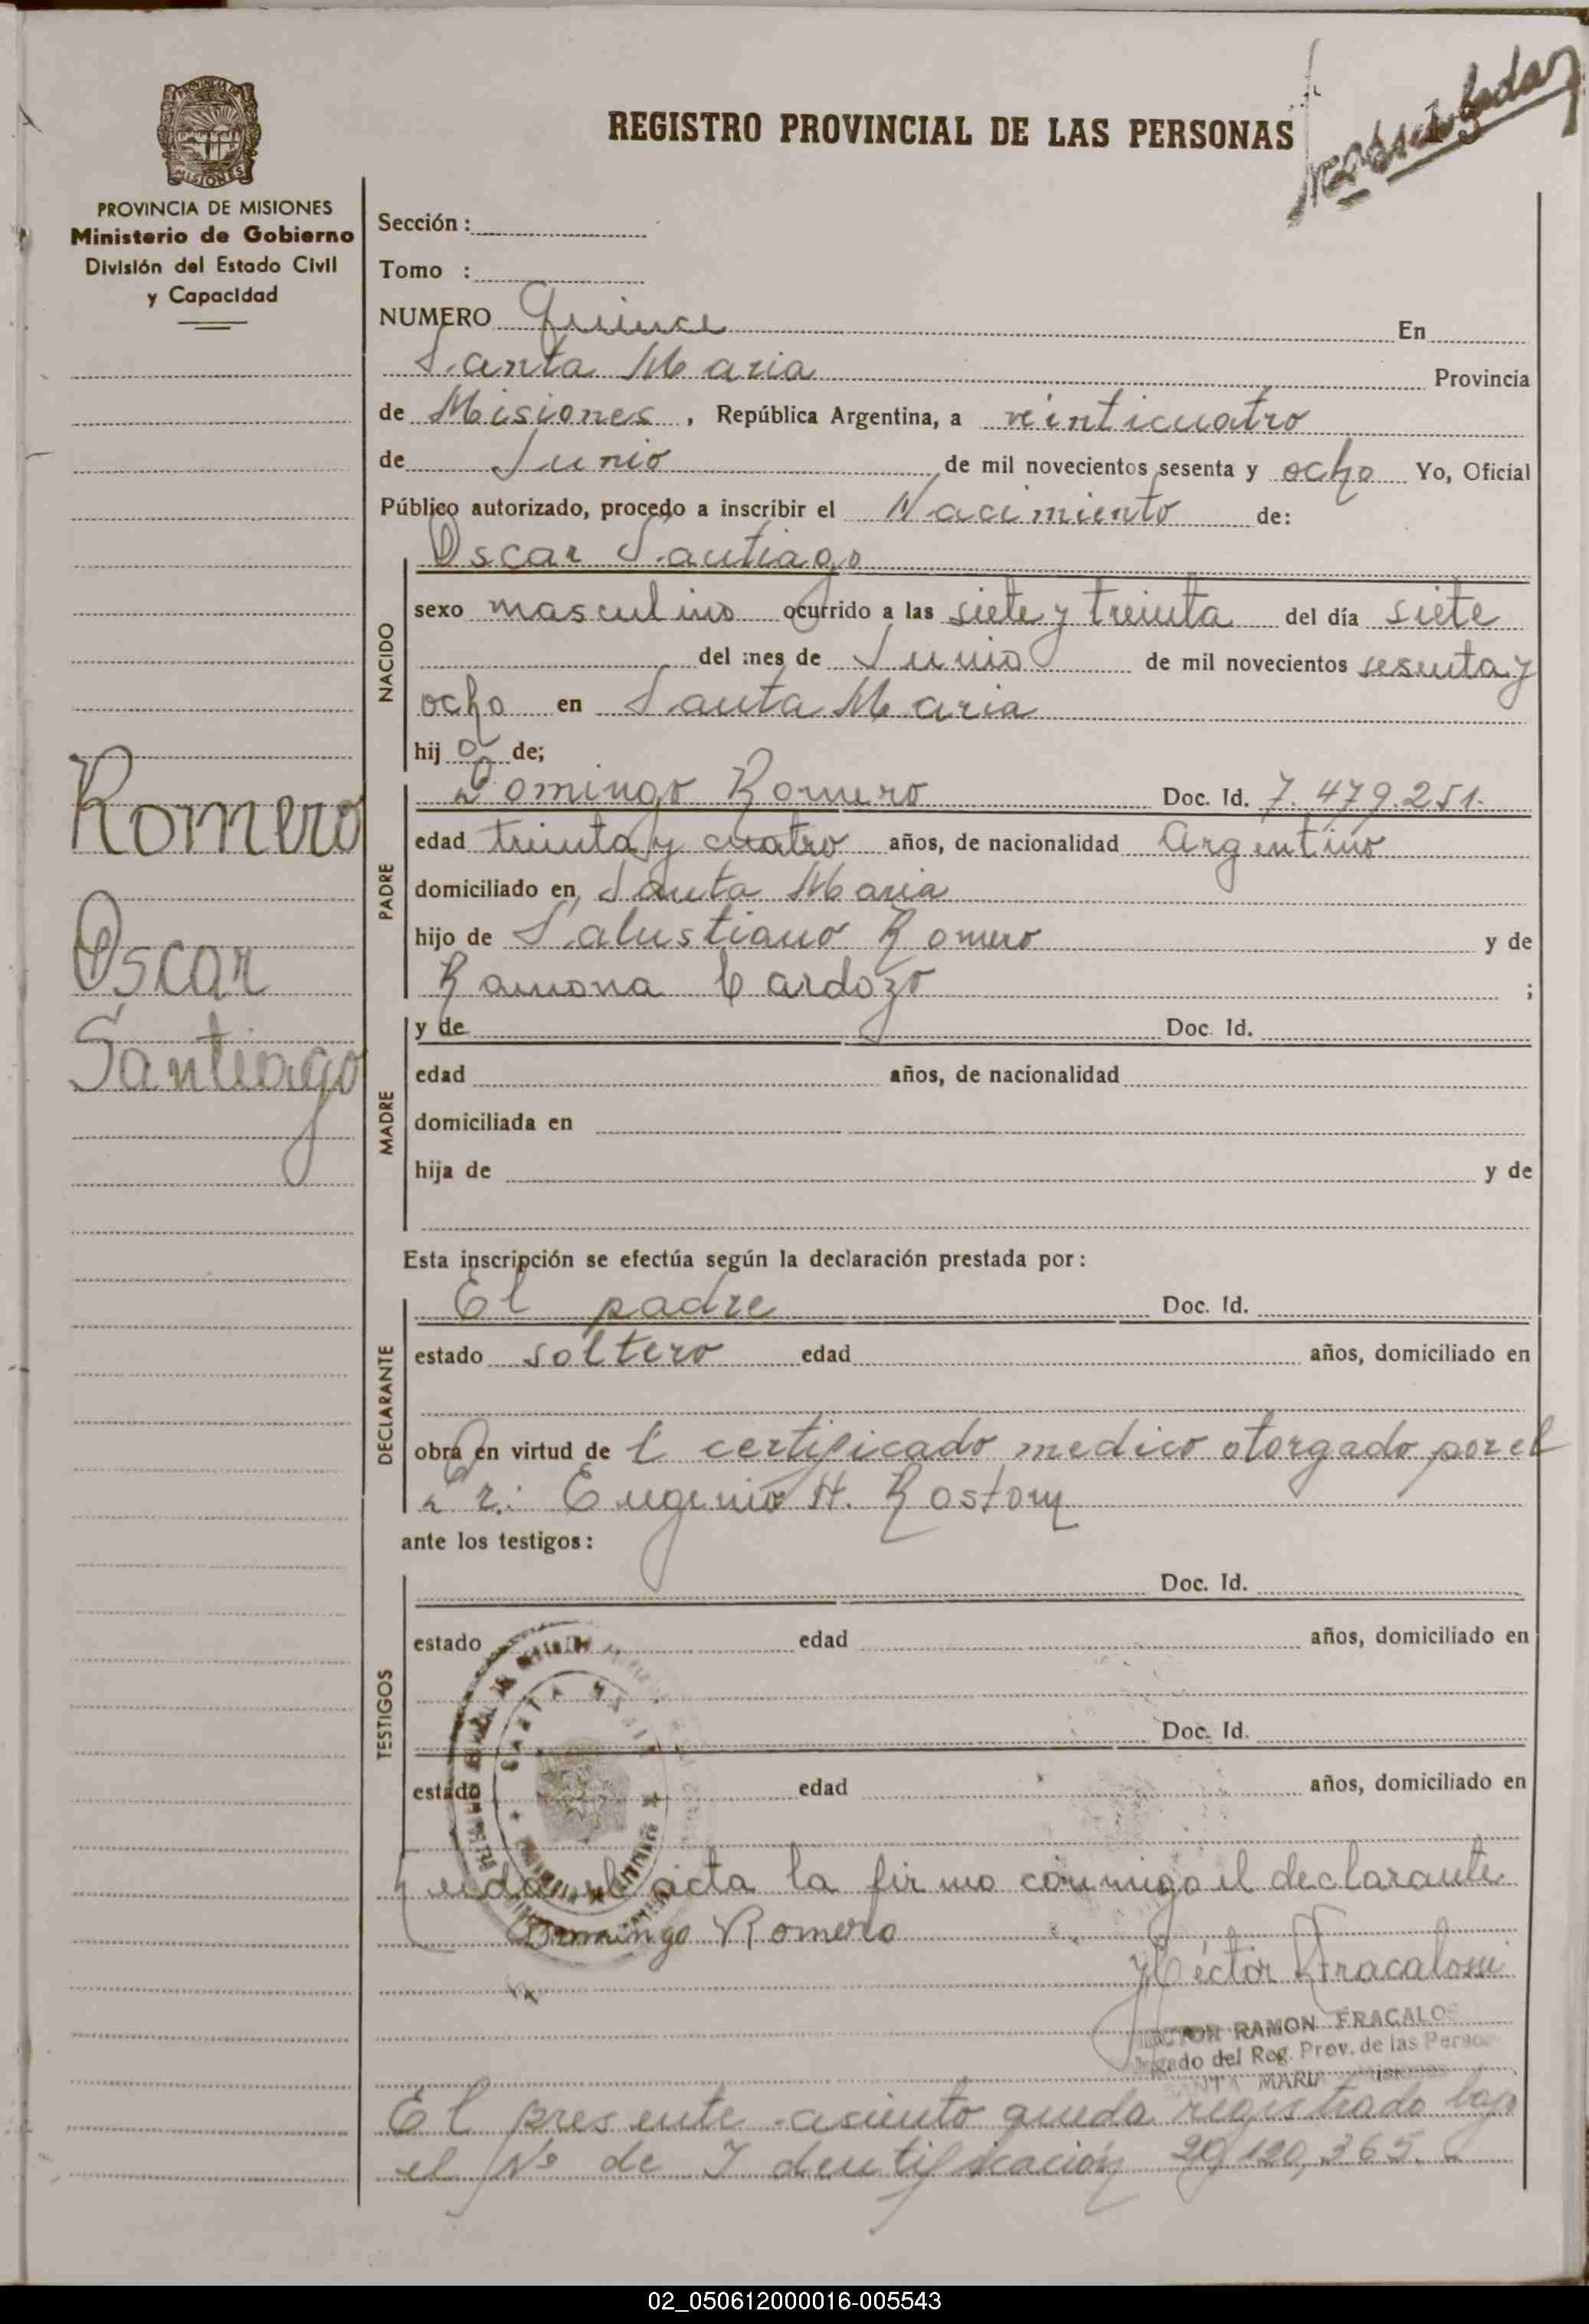 PROVINCIA DE MISIONES
Ministerio de Gobierno
División del Estado Civil
y Capacidad
REGISTRO PROVINCIAL DE LAS PERSONAS
Sección :
Tomo :
NUMERO Quince En
Santa Maria Provincia
de Misiones , República Argentina, a veinticuatro
de Junio de mil novecientos sesenta y ocho Yo, Oficial
Público autorizado, procedo a inscribir el Nacimiento de:
Oscar Santiago
NACIDO
sexo masculino ocurrido a las siete y treinta del día siete
del mes de Junio de mil novecientos sesenta y
ocho en Santa Maria
hij o de;
Romero
Oscar
Santiago
PADRE
Domingo Romero Doc. Id. 7.479.251.
edad treinta y cuatro años, de nacionalidad Argentino
domiciliado en Santa Maria
hijo de Salustiano Romero y de
Ramona Cardozo ;
MADRE
y de Doc. Id.
edad años, de nacionalidad
domiciliada en
hija de y de
Esta inscripción se efectúa según la declaración prestada por :
DECLARANTE
El padre Doc. Id.
estado soltero edad años, domiciliado en
obra en virtud de certificado medico otorgado por el
Dr: Eugenio H. Rostom
ante los testigos :
TESTIGOS
Doc. Id.
estado edad años, domiciliado en
Doc. Id.
estado edad años, domiciliado en
acta la firma conmigo el declarante
Domingo Romero
Héctor Fracalossi
RAMON FRACALO
del Reg. Prov. de las Perso
SANTA MARIA Misiones
El presente asiento queda registrado bajo
el Nº de Identificación 20,120,365.
02_050612000016-005543